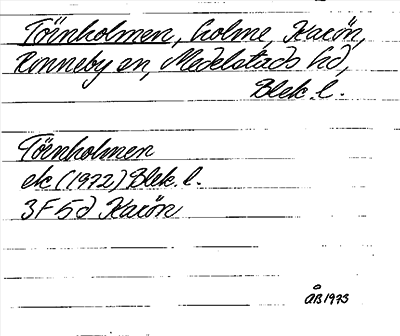 Törnholmen, holme, Karön,
Ronneby sn, Medelstads hd,
Blek. l.
Törnholmen
ek (1972) Blek. l.
3F5d Karön
ÅB 1975